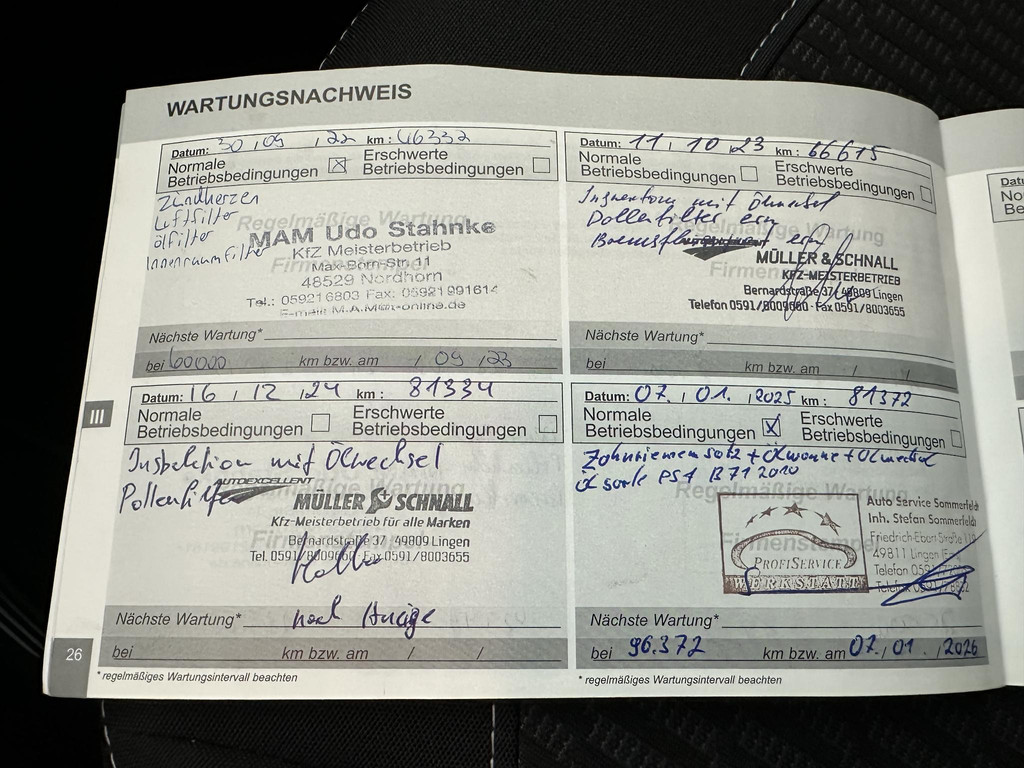 WARTUNGSNACHWEIS
Datum: 30 / 09 / 22 km: 46332
Normale Betriebsbedingungen ☒ Erschwerte Betriebsbedingungen ☐
Zündkerzen
Luftfilter
Ölfilter
Innenraumfilter
Regelmäßige Wartung
MAM Udo Stahnke
KfZ Meisterbetrieb
Max-Born-Str. 11
48529 Nordhorn
Tel.: 05921 6803 Fax: 05921 991614
E-mail: M.A.M@t-online.de
Nächste Wartung*
bei 60000 km bzw. am / 09 / 23
Datum: 11, 10 23 km: 66615
Normale Betriebsbedingungen ☐ Erschwerte Betriebsbedingungen ☐
Inspektion mit Ölwechsel
Pollenfilter ern
Regelmäßige Wartung
MÜLLER & SCHNALL
KFZ-MEISTERBETRIEB
Bernardstraße 37 / 49809 Lingen
Telefon 0591/8009660 · Fax 0591/8003655
Nächste Wartung*
bei km bzw. am / /
III
Datum: 16 / 12 / 24 km: 81334
Normale Betriebsbedingungen ☐ Erschwerte Betriebsbedingungen ☐
Inspektion mit Ölwechsel
Pollenfilter
AUTOEXCELLENT
MÜLLER SCHNALL
Kfz-Meisterbetrieb für alle Marken
Bernardstraße 37 · 49809 Lingen
Tel. 0591/8009660 · Fax 0591/8003655
Nächste Wartung* nach Anzeige
bei km bzw. am / /
Datum: 07. / 01. / 2025 km: 81372
Normale Betriebsbedingungen ☒ Erschwerte Betriebsbedingungen ☐
Zahnriemensatz + Ölwanne + Ölwechsel
Ölsorte PSA B71 2010
Regelmäßige Wartung
Firmenstempel
PROFISERVICE
WERKSTATT
Auto Service Sommerfeld
Inh. Stefan Sommerfeld
Friedrich-Ebert-Straße
49811 Lingen
Telefon
Telefax
Nächste Wartung*
bei 96.372 km bzw. am 07. / 01. / 2026
26
* regelmäßiges Wartungsintervall beachten
* regelmäßiges Wartungsintervall beachten